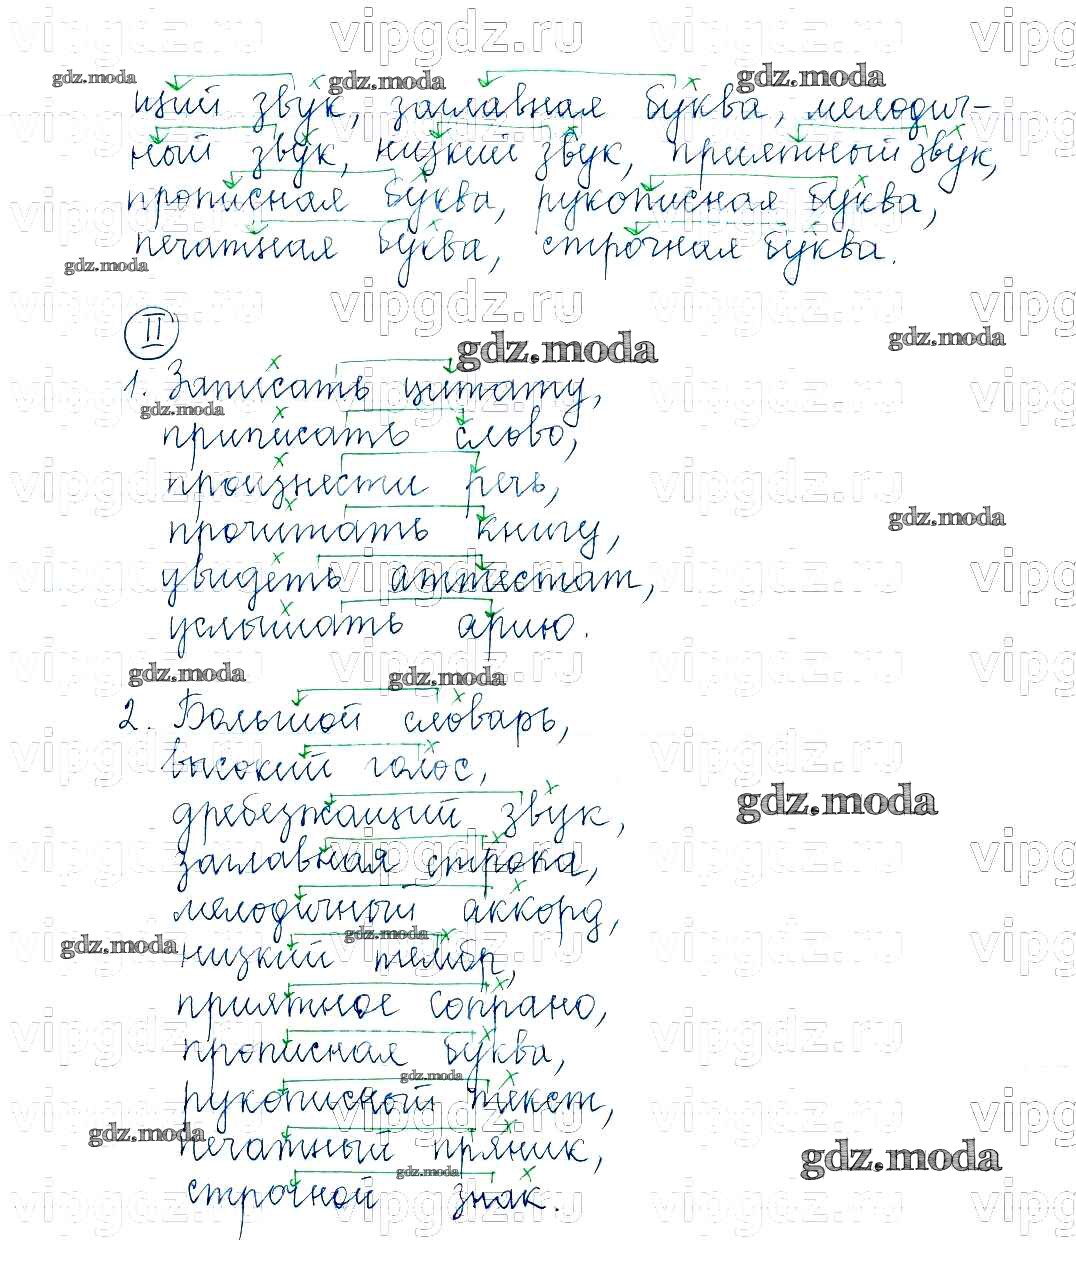 щий звук, заглавная буква, мелодич-
ный звук, низкий звук, приятный звук,
прописная буква, рукописная буква,
печатная буква, строчная буква.
II
1. Записать цитату,
приписать слово,
произнести речь,
прочитать книгу,
увидеть аттестат,
услышать арию.
2. Большой словарь,
высокий голос,
дребезжащий звук,
заглавная строка,
мелодичный аккорд,
низкий тембр,
приятное сопрано,
прописная буква,
рукописный текст,
печатный пряник,
строчной знак.
vipgdz.ru
gdz.moda